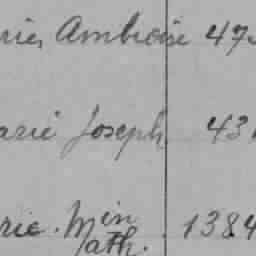 ries Ambroise 473
arie Joseph 431
rie. Min
Math. 1384